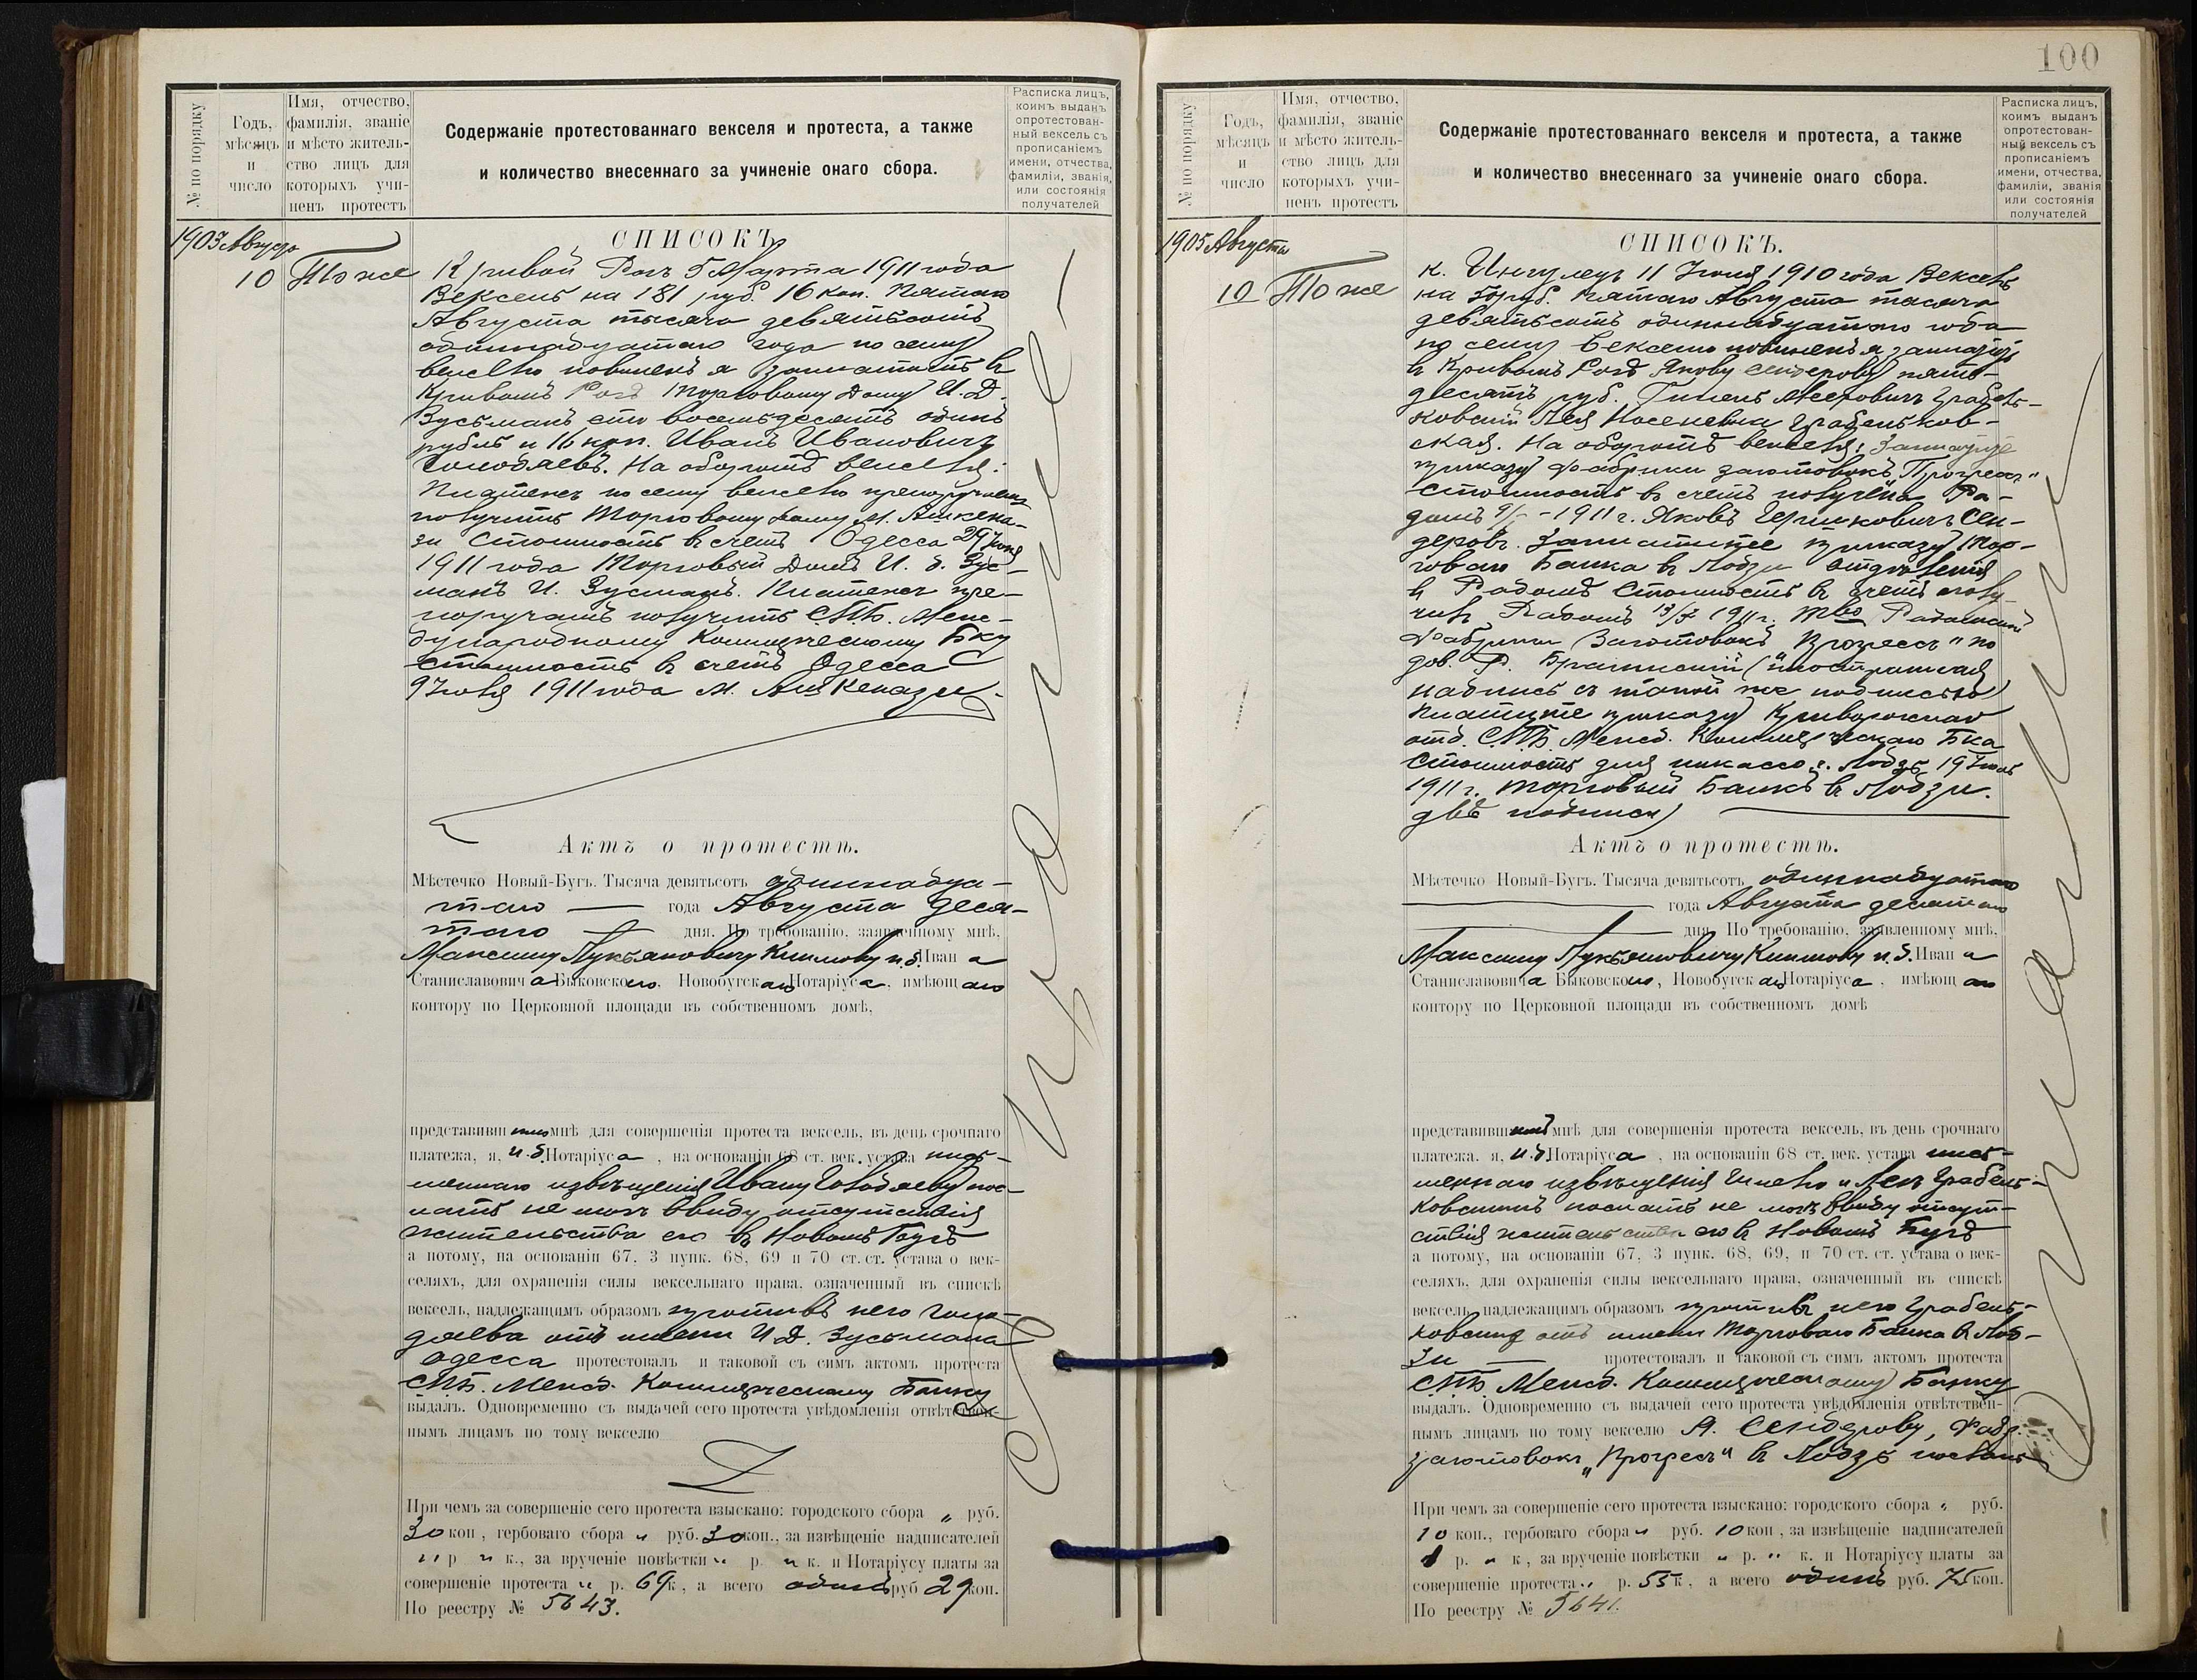 № по порядку
Годъ, мѣсяцъ и число
Имя, отчество, фамилія, званіе и мѣсто жительство лицъ для которыхъ учиненъ протестъ
Содержаніе протестованнаго векселя и протеста, а также
и количество внесеннаго за учиненіе онаго сбора.
Расписка лицъ, коимъ выданъ опротестованный вексель съ прописаніемъ имени, отчества, фамиліи, званія, или состоянія получателей
Августа
10 То же
СПИСОКЪ
Кривой Рогъ 5 Марта 1911 года
Вексель на 181 руб. 16 коп. Пятаго
Августа тысяча девятьсотъ
одиннадцатаго года по сему
векселю повиненъ я заплатить въ
Кривомъ Рогѣ Торговому Дому И. Д.
Зусьманъ сто восемьдесятъ одинъ
рубль и 16 коп. Иванъ Ивановичъ
На оборотѣ векселя:
Платежъ по сему векселю препоручаемъ
получить Торговому Дому М. Ашкена-
зи Стоимость въ счетъ Одесса 29 Іюня
1911 года Торговый Домъ И. Д. Зус-
манъ И. Зусманъ. Платежъ пре-
поручаемъ получить СПБ. Меж-
дународному Коммерческому Бку
стоимость въ счетъ Одесса
9 Іюля 1911 года М. Ашкенази.
Актъ о протестѣ.
Мѣстечко Новый-Бугъ. Тысяча девятьсотъ одиннадца-
таго года Августа деся-
таго дня. По требованію, заявленному мнѣ,
Максиму Лукьяновичу Климову и.д. Иван а
Станиславович а Быковскаго, Новобугскаго Нотаріуса, имѣющаго
контору по Церковной площади въ собственномъ домѣ,
представившимъ мнѣ для совершенія протеста вексель, въ день срочнаго
платежа, я, и.д. Нотаріуса, на основаніи 68 ст. век. устава пись-
меннаго извѣщенія Ивану Голодяеву пос-
лать не могъ ввиду отсутствія
жительства его въ Новомъ Бугѣ
а потому, на основаніи 67, 3 пунк. 68, 69 и 70 ст. ст. устава о век-
селяхъ, для охраненія силы вексельнаго права, означенный въ спискѣ
вексель, надлежащимъ образомъ противъ него Голо-
дяева отъ имени И. Д. Зусьмана
Одесса протестовалъ и таковой съ симъ актомъ протеста
СПБ. Межд. Коммерческому Банку
выдалъ. Одновременно съ выдачей сего протеста увѣдомленія отвѣтствен-
нымъ лицамъ по тому векселю
При чемъ за совершеніе сего протеста взыскано: городского сбора „ руб.
30 коп., гербоваго сбора „ руб. 30 коп., за извѣщеніе надписателей
„ р „ к., за врученіе повѣстки „ р. „ к. и Нотаріусу платы за
совершеніе протеста „ р. 69 к., а всего одинъ руб 29 коп.
По реестру № 5643.
100
№ по порядку
Годъ, мѣсяцъ и число
Имя, отчество, фамилія, званіе и мѣсто жительство лицъ для которыхъ учиненъ протестъ
Содержаніе протестованнаго векселя и протеста, а также
и количество внесеннаго за учиненіе онаго сбора.
Расписка лицъ, коимъ выданъ опротестованный вексель съ прописаніемъ имени, отчества, фамиліи, званія или состоянія получателей
1905 Августа
10 То же
СПИСОКЪ.
к. Ингулецъ 11 Іюня 1910 года Вексель
на 50 руб. Пятаго Августа тысяча
девятьсотъ одиннадцатаго года
по сему векселю повиненъ я заплатить
въ Кривомъ Рогѣ Якову Сендерову пять-
десятъ руб. Грабель-
ковскій Лея Грабельков-
ская. На оборотѣ векселя: Заплатите
приказу Фабрики заготовокъ „Прогрессъ“
стоимость въ счетъ получена Ра-
домъ 1911 г. Яковъ Гершковичъ Сен-
деровъ. Заплатите приказу Тор-
говаго Банка въ Лодзи Отдѣленія
въ Радомѣ Стоимость въ счетъ полу-
чивъ Радомъ 1911 г. Тво Радомской
Фабрики Заготовокъ „Прогрессъ“ по
дов. (иностранная
надпись съ такой же подписью)
Платите приказу Криворожскаго
отд. СПБ. Межд. Коммерческаго Бка
Стоимость для инкассо г. Лодзь 19 Іюля
1911 г. Торговый Банкъ въ Лодзи.
двѣ подписи)
Актъ о протестѣ.
Мѣстечко Новый-Бугъ. Тысяча девятьсотъ одиннадцатаго
года Августа десятаго
дня По требованію, заявленному мнѣ,
Максиму Лукьяновичу Климову и.д. Иван а
Станиславовича Быковскаго, Новобугскаго Нотаріуса, имѣющаго
контору по Церковной площади въ собственномъ домѣ
представившимъ мнѣ для совершенія протеста вексель, въ день срочнаго
платежа. я, и.д. Нотаріуса, на основаніи 68 ст. век. устава пись-
меннаго извѣщенія и Леѣ Грабель-
ковскимъ послать не могъ ввиду отсут-
ствія жительства его въ Новомъ Бугѣ
а потому, на основаніи 67, 3 пунк. 68, 69, и 70 ст. ст. устава о век-
селяхъ, для охраненія силы вексельнаго права, означенный въ спискѣ
вексель, надлежащимъ образомъ противъ него Грабель-
ковскихъ отъ имени Торговаго Банка въ Лод-
зи протестовалъ и таковой съ симъ актомъ протеста
СПБ. Межд. Коммерческому Банку
выдалъ. Одновременно съ выдачей сего протеста увѣдомленія отвѣтствен-
нымъ лицамъ по тому векселю Я. Сендерову, Фабр.
заготовокъ „Прогрессъ“ въ Лодзь посланы
При чемъ за совершеніе сего протеста взыскано: городского сбора „ руб.
10 коп., гербоваго сбора „ руб. 10 коп, за извѣщеніе надписателей
1 р. „ к, за врученіе повѣстки „ р. „ к. и Нотаріусу платы за
совершеніе протеста „ р. 55 к, а всего одинъ руб. 75 коп.
По реестру № 5641.